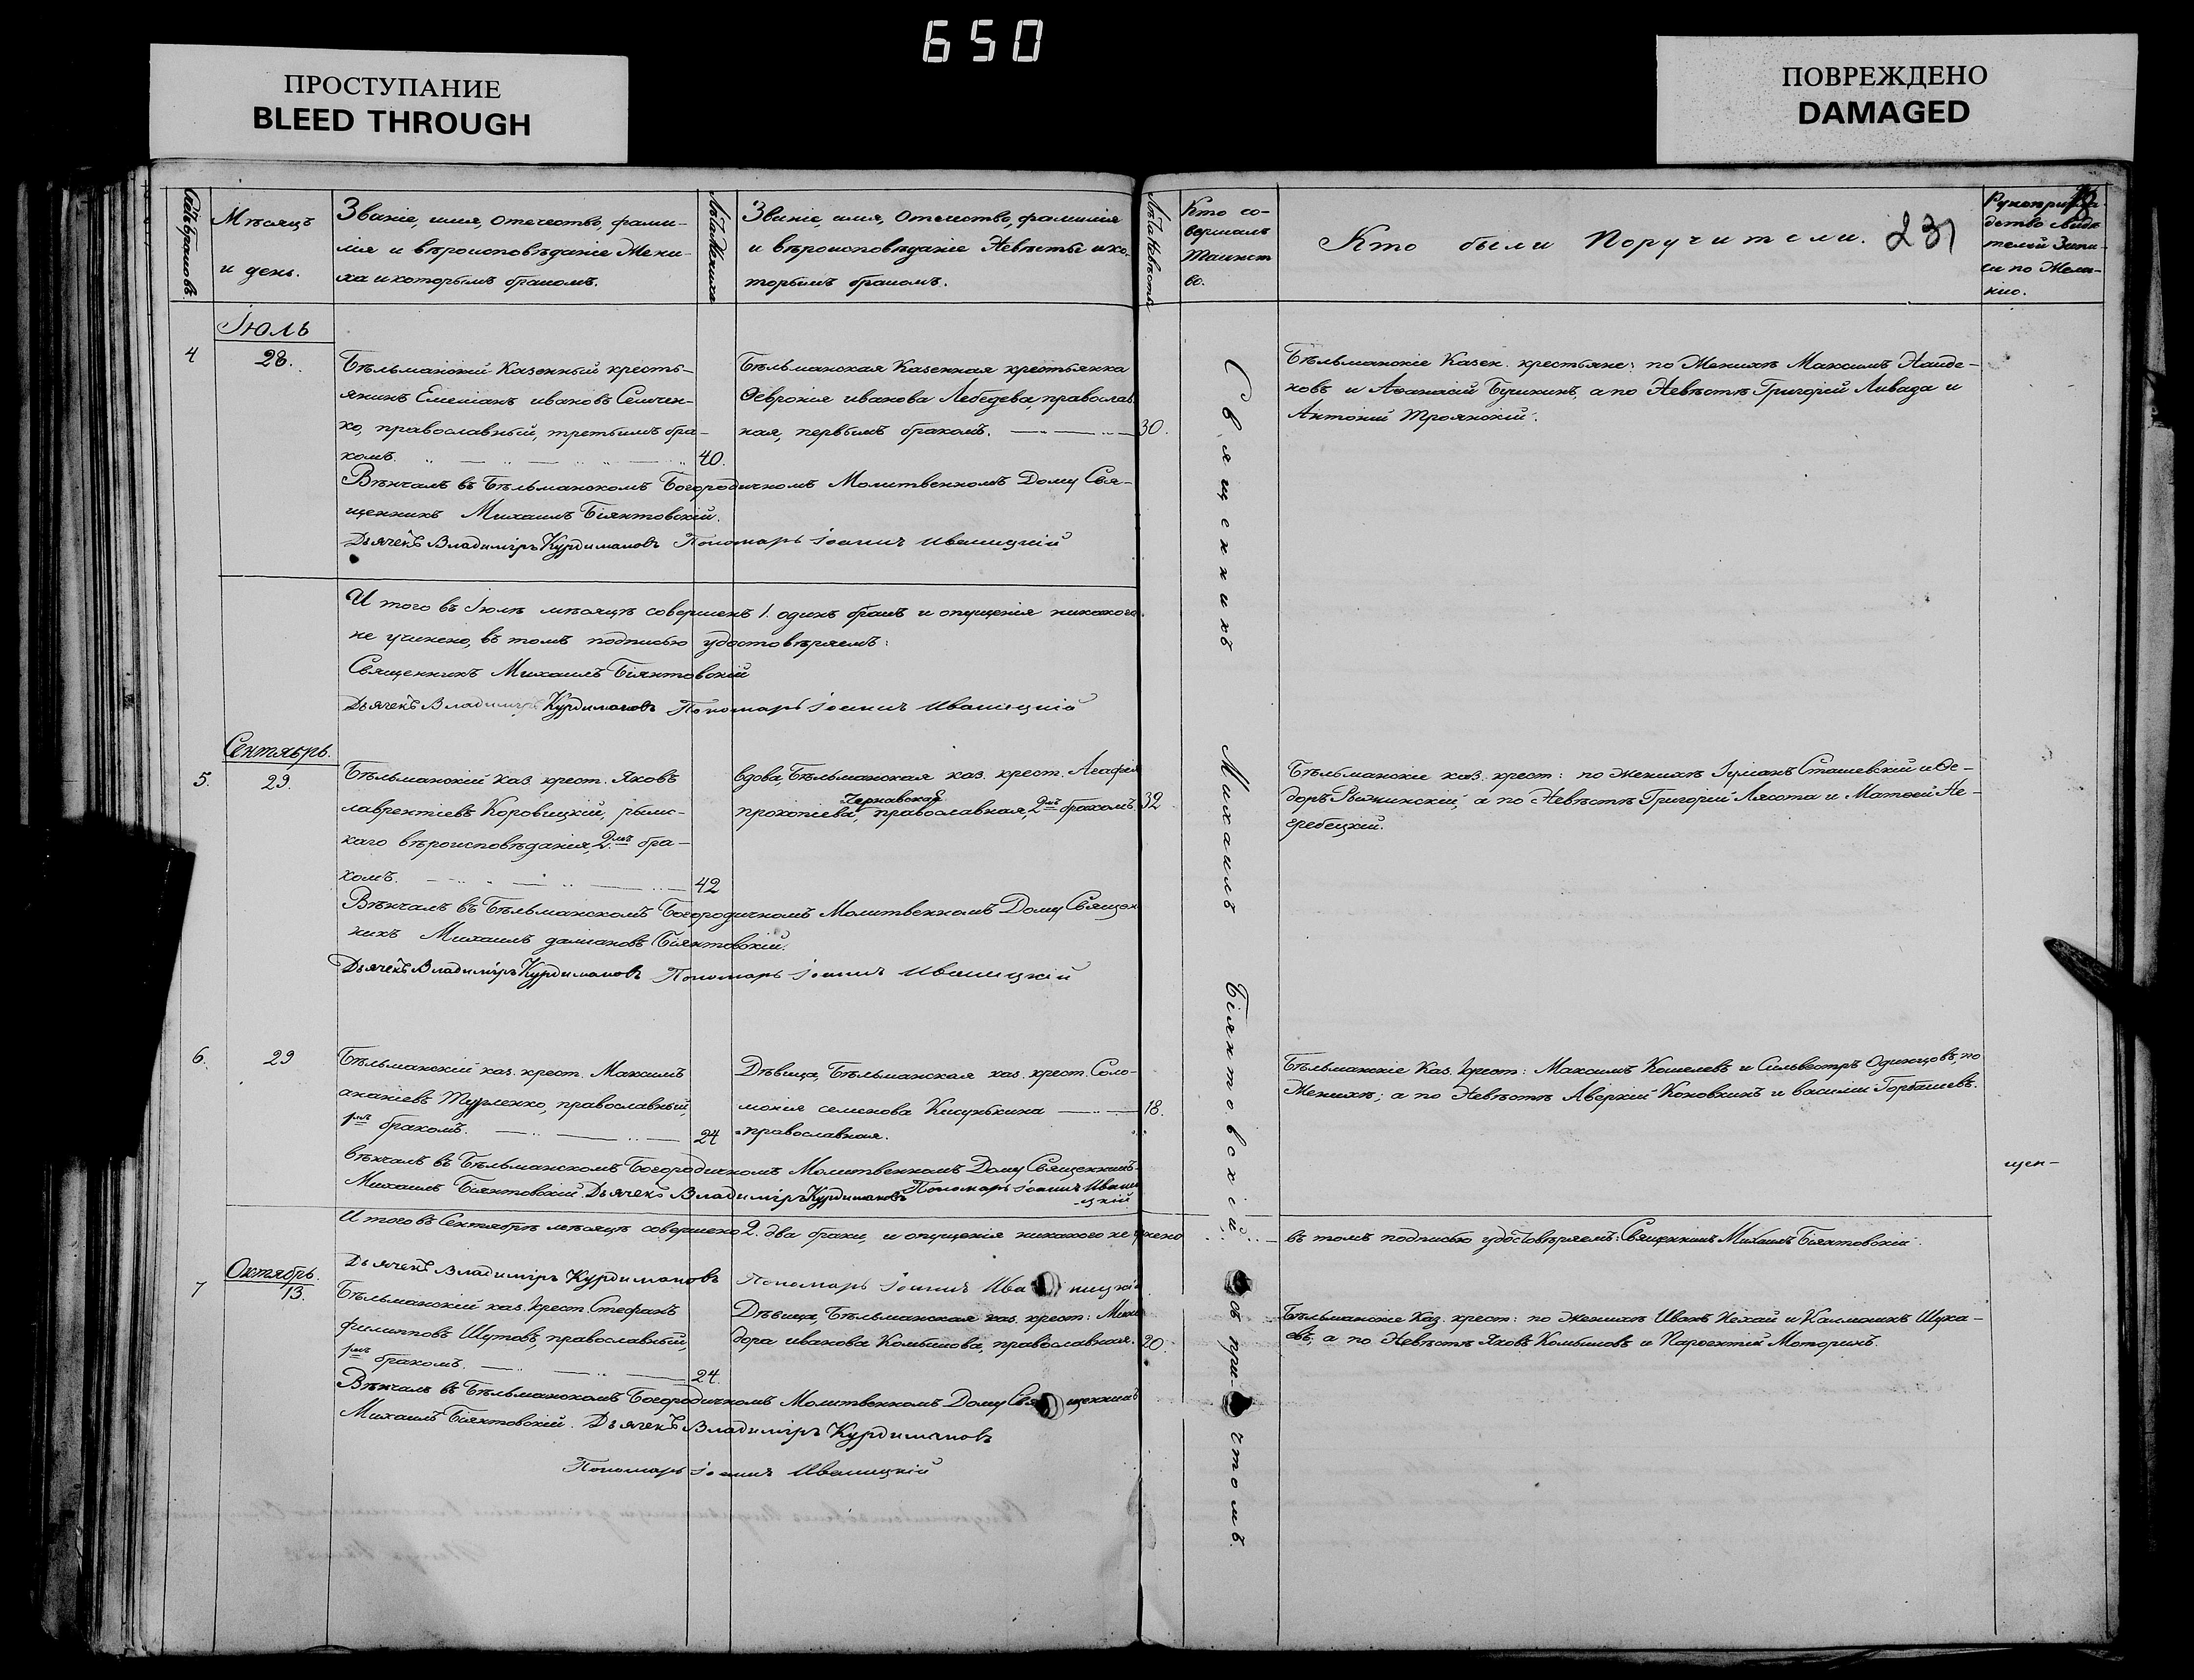 650
ПРОСТУПАНИЕ
BLEED THROUGH
ПОВРЕЖДЕНО
DAMAGED
Мѣсяцъ
и день.
Званіе, имя, отечество, фами-
лія и вѣроисповѣданіе Жени-
ха и которымъ бракомъ.
Лѣта Жениха
Званіе, имя, Отечество, фамилія
и вѣроисповѣданіе Невѣсты и ко-
торымъ бракомъ.
Лѣта Невѣсты
Кто со-
вершалъ
Таинст
во.
Кто были Поручители. 231
дство Свидѣ
телей Запи-
си по Жела-
нію.
Іюль
4
28.
Бѣльманскій Казенный кресть-
янинъ Емеліанъ ивановъ Семчен-
ко, православный, третьимъ бра-
комъ. 40.
Бѣльманская Казенная крестьянка
Февронія иванова Лебедева, православ
ная, первымъ бракомъ. 30.
Бѣльманскіе Казен. крестьяне: по Женихѣ Максимъ Найде-
новъ и Афанасій Бучикинъ, а по Невѣстѣ Григорій Ливада и
Антоній Троянскій.
Вѣнчалъ въ Бѣльманскомъ Богородичномъ Молитвенномъ Дому Свя-
щенникъ Михаилъ Біянтовскій.
Дьячекъ Владиміръ Курдимановъ Пономарь Іоаннъ Иваницкій
Итого въ Іюлѣ мѣсяцѣ совершенъ 1. одинъ бракъ и опущенія никакого
не учинено, въ томъ подписью удостовѣряемъ:
Священникъ Михаилъ Біянтовскій
Дьячекъ Владиміръ Курдимановъ Пономарь Іоаннъ Иваницкій
Сентябрь.
5.
29.
Бѣльманскій каз. крест. Яковъ
лаврентіевъ Коровицкій, рымс-
каго вѣроисповѣданія, 2мъ бра-
комъ. 42
вдова, Бѣльманская каз. крест. Агафія
Чернавская
прокопіева, православная, 2мъ бракомъ. 32
Бѣльманскіе каз. крест: по женихѣ Іуліанъ Сташевскій и Фе-
доръ Рыжинскій, а по Невѣстѣ Григорій Лясота и Матфей Не-
гребецкій.
Вѣнчалъ въ Бѣльманскомъ Богородичномъ Молитвенномъ Дому Священ
никъ Михаилъ даміановъ Біянтовскій.
Дьячекъ Владиміръ Курдимановъ Пономарь Іоаннъ Иваницкій
6.
29
Бѣльманскій каз. крест. Максимъ
ананіевъ Турленко, православный,
1мъ бракомъ. 24
Дѣвица, Бѣльманская каз. крест. Соло-
монія семенова Кисунькина 18.
православная.
Бѣльманскіе Каз. Крест: Максимъ Кошелевъ и Сильвестръ Одинцовъ, по
Женихѣ; а по Невѣстѣ Аверкій Коновкинъ и василій Горбашевъ.
вѣнчалъ въ Бѣльманскомъ Богородичномъ Молитвенномъ Дому Священникъ
Михаилъ Біянтовскій Дьячекъ Владиміръ Курдимановъ Пономарь Іоаннъ Ивани
цкій
щен-
Итого въ Сентябрѣ мѣсяцѣ совершено 2. два браки, и опущенія никакого не учинено
въ томъ подписью удостовѣряемъ: Священникъ Михаилъ Біянтовскій.
Дьячекъ Владиміръ Курдимановъ Пономарь Іоаннъ Иваницкій
Октябрь.
7
13.
Бѣльманскій каз. Крест. Стефанъ
филипповъ Шутовъ, православный,
1мъ бракомъ. 24.
Дѣвица, Бѣльманская каз. крест: Мени
дора иванова Комбинова, православная. 20.
Бѣльманскіе Каз. крест: по женихѣ Иванъ Нехай и Каллиникъ Шука-
евъ, а по Невѣстѣ Яковъ Комбиновъ и Парфентій Моторинъ.
Вѣнчалъ въ Бѣльманскомъ Богородичномъ Молитвенномъ Дому Священникъ
Михаилъ Біянтовскій. Дьячекъ Владиміръ Курдимановъ
Пономарь Іоаннъ Иваницкій
Священникъ Михаилъ Біянтовскій. съ причтомъ.